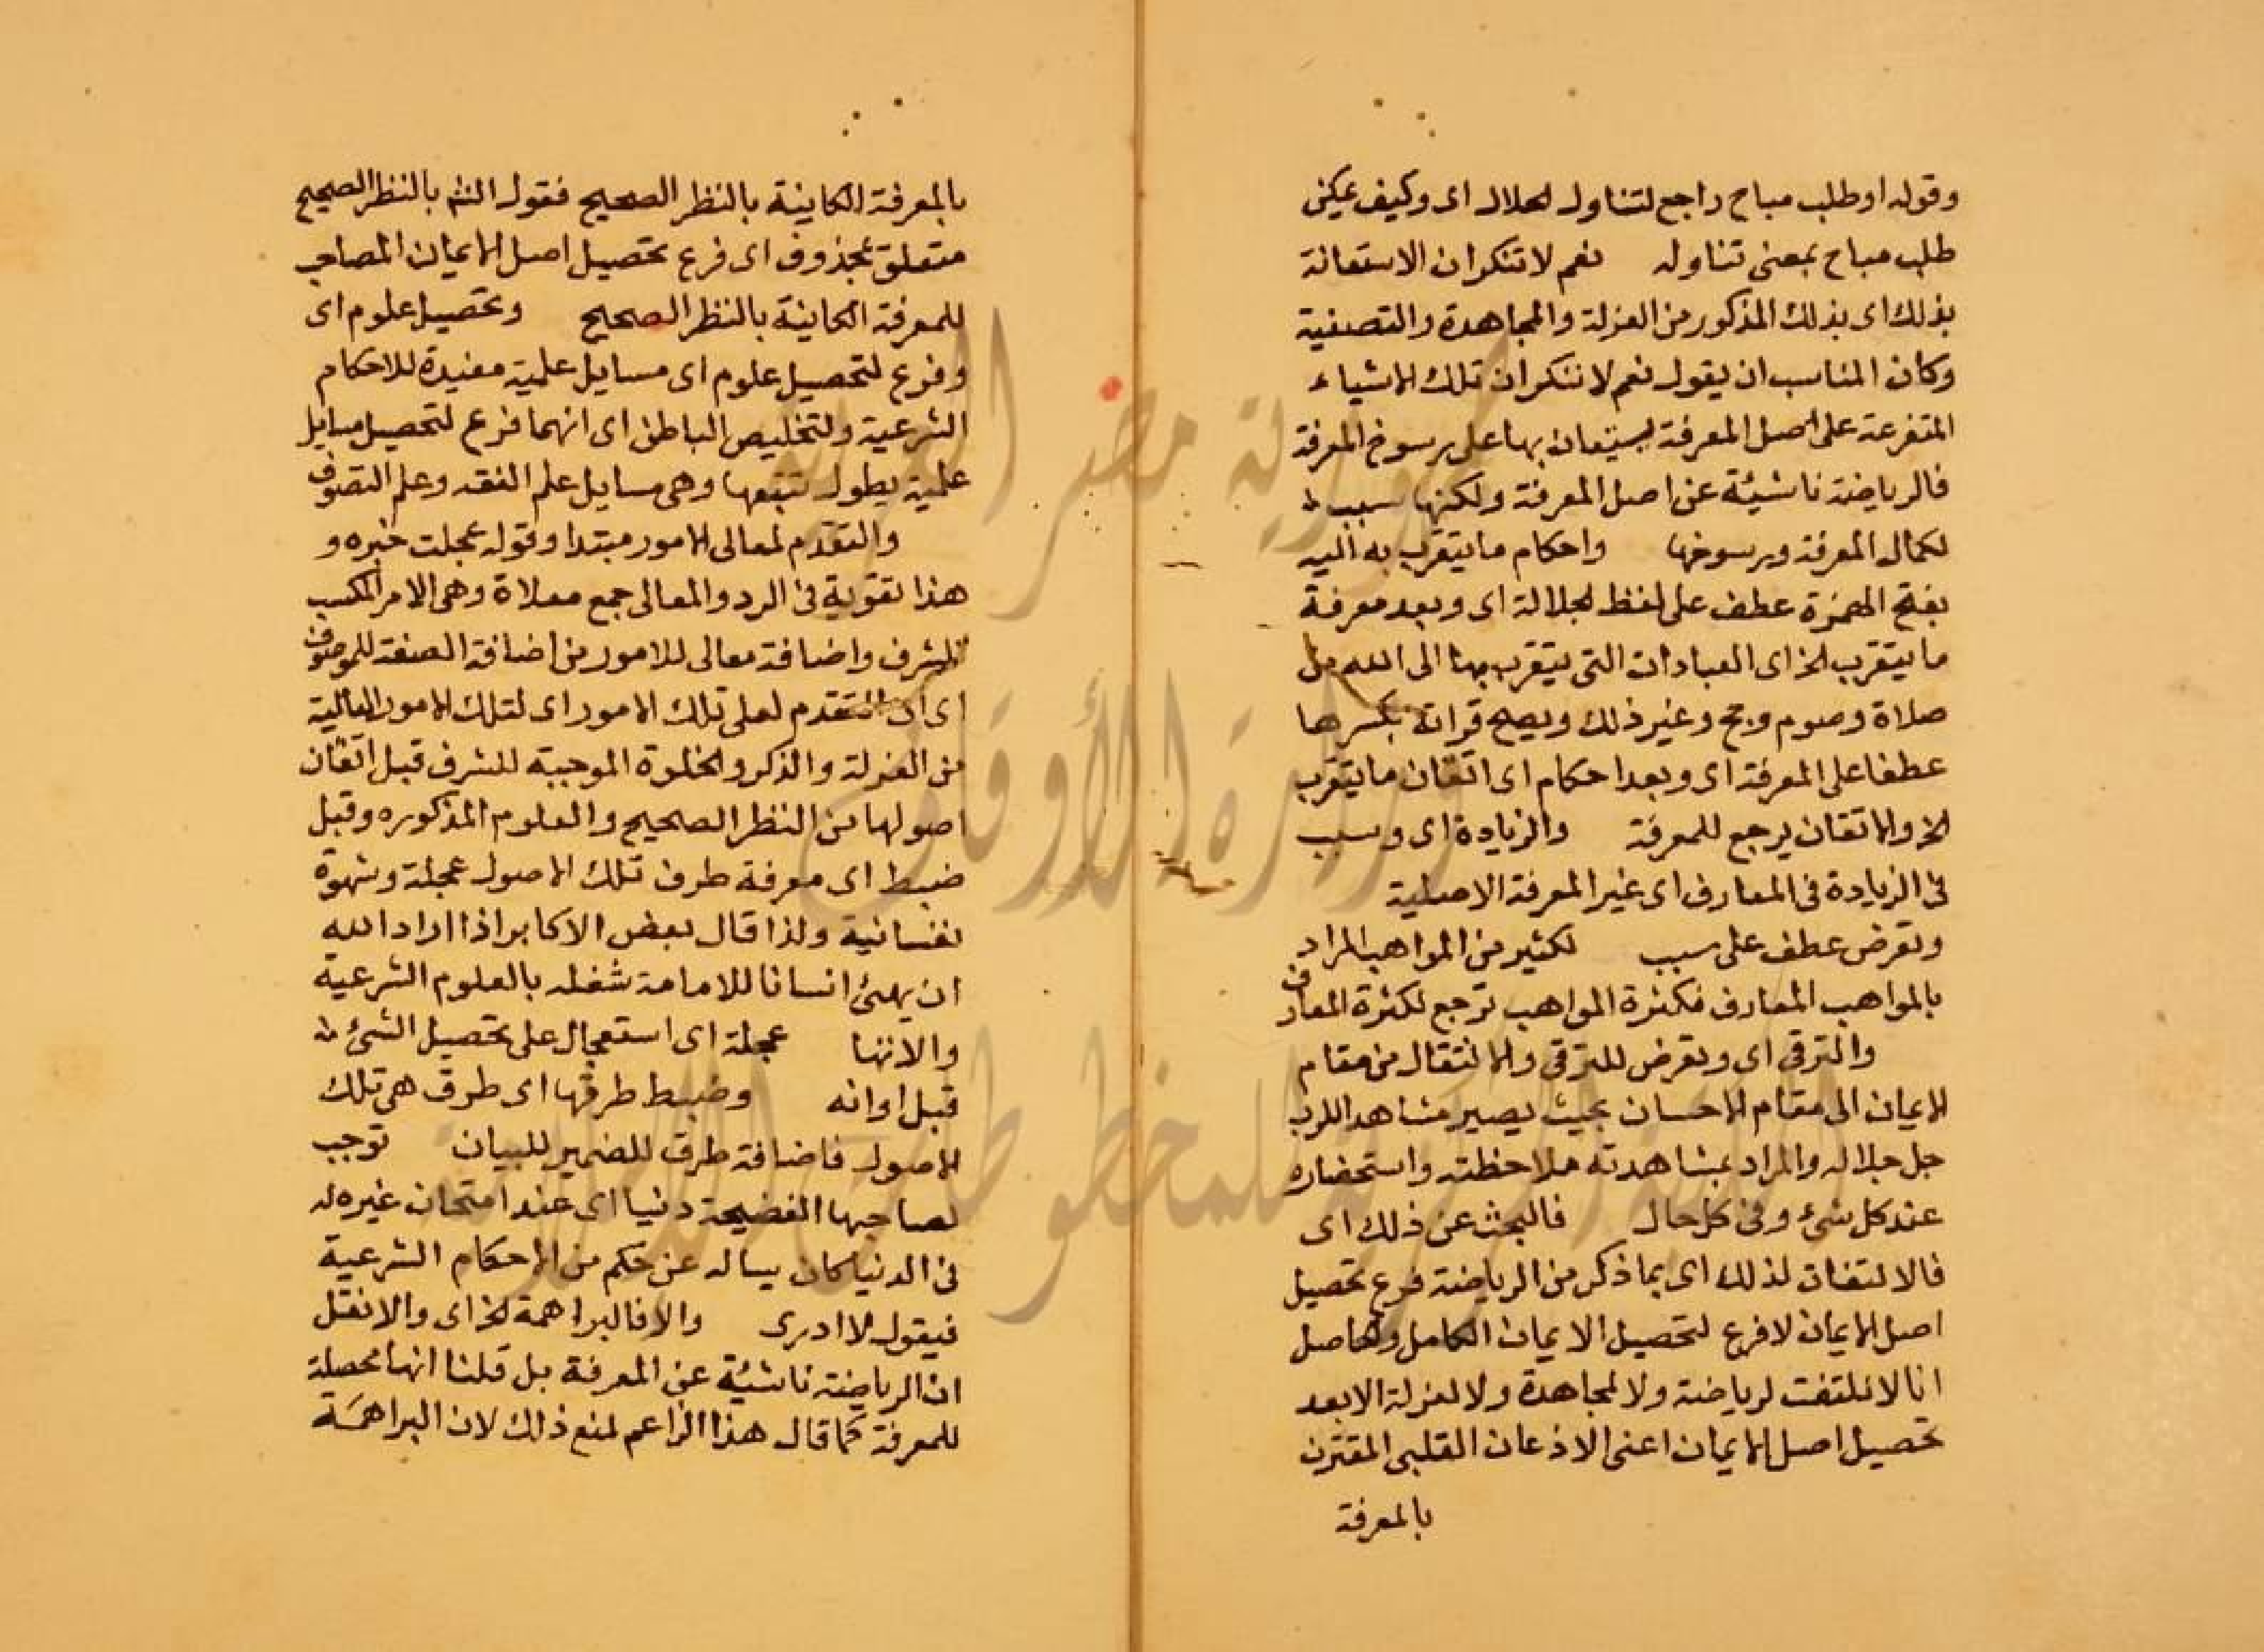 وقوله او طلب مباح راجع لتناول الحلال اى وكيف يمكن
طلب مباح بمعنى تناوله نعم لا تنكر ان الاستعانة
بذلك اى بذلك المذكور من العزلة والمجاهدة والتصفية
وكان المناسب ان يقول نعم لا ننكر ان تلك الاشياء
المتفرعة على اصل المعرفة ليستعان بها على رسوخ المعرفة
فالرياضة ناشيئة عن اصل المعرفة ولكنها سبب
لكمال المعرفة ورسوخها واحكام ما يتقرب به اليه
بفتح الهمزة عطف على لفظ الجلالة اى وبعد معرفة
ما يتقرب الخ اى العبادات التى يتقرب بها الى الله من
صلاة وصوم وحج وغير ذلك ويصح قراته بكسرها
عطفا على المعرفة اى وبعد احكام اى اتقان ما يتقرب
الخ والاتقان يرجع للمعرفة والزيادة اى وسبب
فى الزيادة فى المعارف اى غير المعرفة الاصلية
وتعرض عطف على سبب لكثير من المواهب المراد
بالمواهب المعارف فكثرة المواهب ترجع لكثرة المعارف
والترقى اى وتعرض للترقى والانتقال من مقام
الايمان الى مقام الاحسان بحيث يصير مشاهدا للرب
جل جلاله والمراد بمشاهدته ملاحظته واستحضاره
عند كل شىء وفى كل حال فالبحث عن ذلك اى
فالالتفات لذلك اى بما ذكر من الرياضة فرع تحصيل
اصل الايمان لا فرع لتحصيل الايمان الكامل والحاصل
انا لا نلتفت لرياضة ولا لمجاهدة ولا لعزلة الا بعد
تحصيل اصل الايمان اعنى الاذعان القلبى المقترن
بالمعرفة
بالمعرفة الكاينة بالنظر الصحيح فقول الشم بالنظر الصحيح
متعلق بمحذوف اى فرع تحصيل اصل الايمان المصاحب
للمعرفة الكاينة بالنظر الصحيح وتحصيل علوم اى
وفرع لتحصيل علوم اى مسايل علمية مفيدة للاحكام
الشرعية ولتخليص الباطن اى انهما فرع لتحصيل مسايل
علمية يطول تتبعها وهى مسايل علم الفقه وعلم التصوف
والتقدم لمعالى الامور مبتدا وقوله عجلت خبره و
هذا تقوية فى الرد والمعالى جمع معلاة وهى الامر المكسب
للشرف واضافة معالى للامور من اضافة الصفة للموصوف
اى ان التقدم لعلى تلك الامور اى لتلك الامور العالية
من العزلة والذكر والخلوة الموجبة للشرف قبل اتقان
اصولها من النظر الصحيح والعلوم المذكوره وقبل
ضبط اى معرفة طرف تلك الاصول عجلة وشهوة
نفسانية ولذا قال بعض الاكابر اذا اراد الله
ان يهىئ انسانا للامامة شغله بالعلوم الشرعية
والاننها عجلة اى استعجال على تحصيل الشئ
قبل اوانه وضبط طرقها اى طرق هى تلك
الاصول فاضافة طرق للضمير للبيان توجب
لصاحبها الفضيحة دنيا اى عند امتحان غيره له
فى الدنيا كان يساله عن حكم من الاحكام الشرعية
فيقول لا ادرى والا فالبراهمة الخ اى والا نقل
ان الرياضة ناشيئة عن المعرفة بل قلنا انها محصلة
للمعرفة كما قال هذا الزاعم لمنع ذلك لان البراهمة
جمهورية مصر العربية
وزارة الأوقاف
المكتبة المركزية للمخطوطات الإسلامية